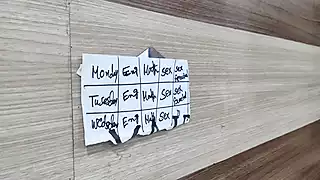 Monday Eng Math sex sex
Tuesday Eng Math sex sex
Wednesday Eng Math sex